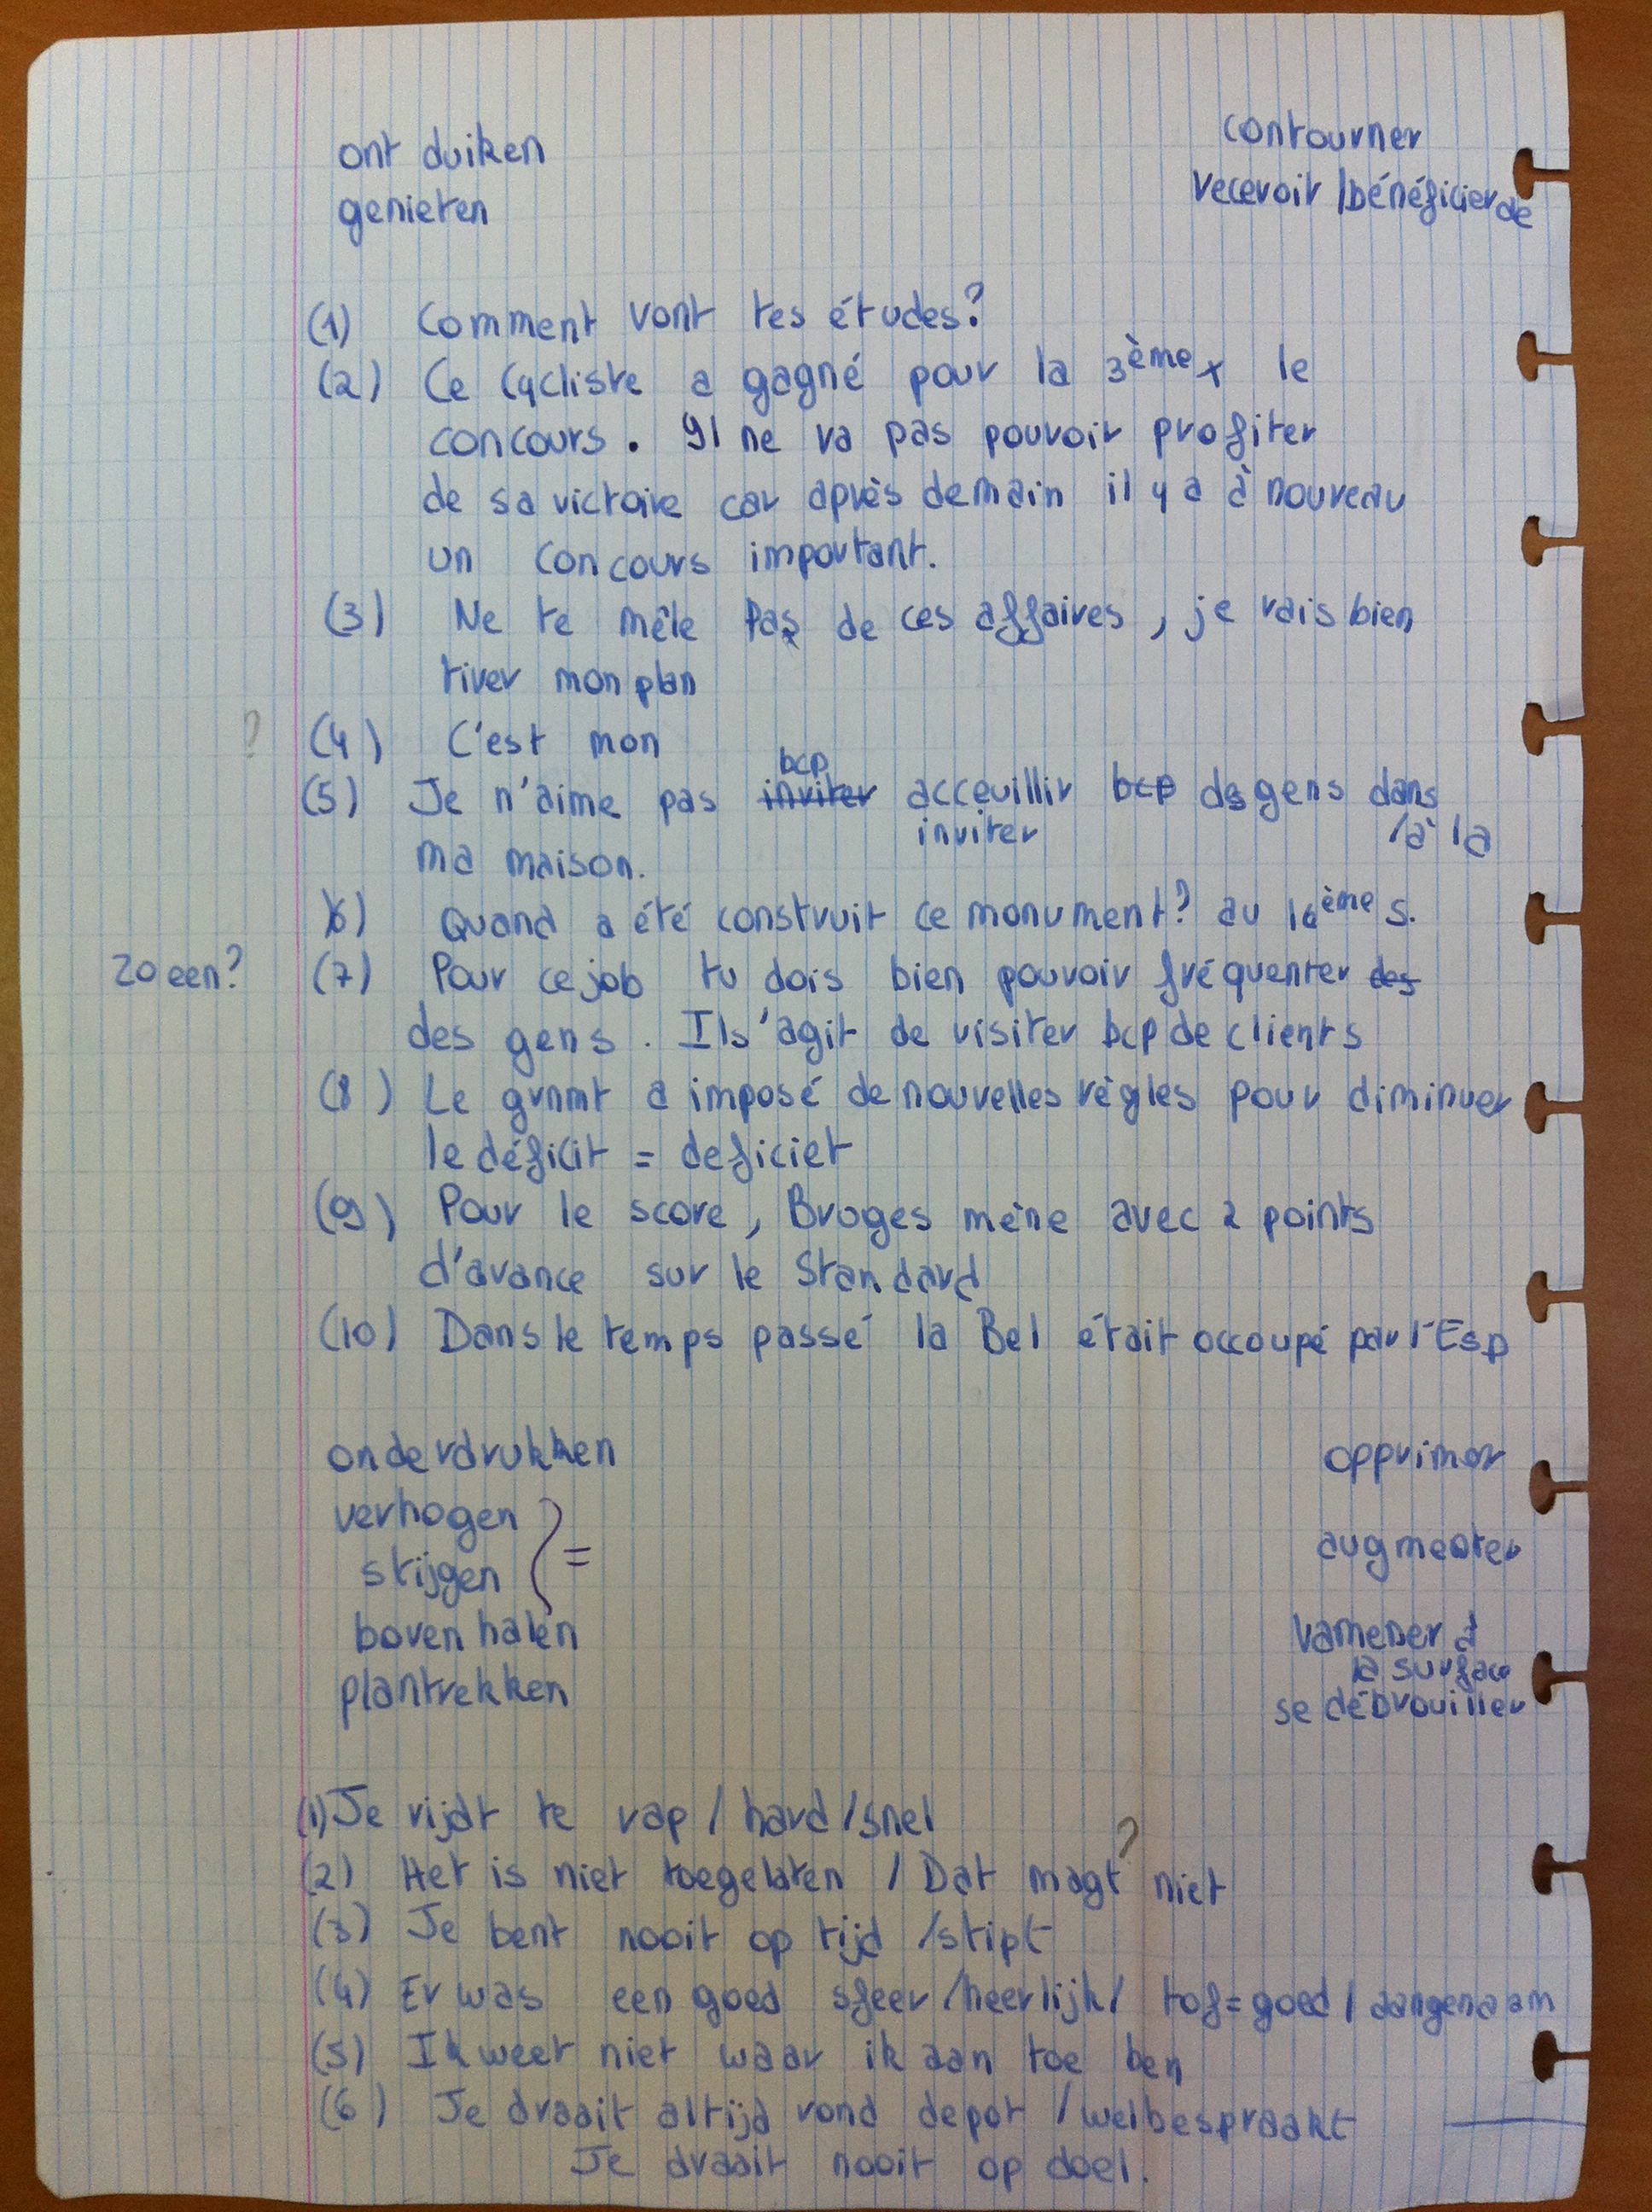 ontduiken contourner
genieten recevoir /bénéficier de
(1) Comment vont tes études?
(2) Ce cycliste a gagné pour la 3ème x le
concours. Il ne va pas pouvoir profiter
de sa victoire car après demain il y a à nouveau
un concours important.
(3) Ne te mêle pas de ces affaires, je vais bien
tirer mon plan
? (4) C'est mon
bcp
(5) Je n'aime pas inviter acceuillir bcp des gens dans
inviter /à la
ma maison.
(6) Quand a été construit ce monument? au 16ème s.
Zo een? (7) Pour ce job tu dois bien pouvoir fréquenter des
des gens. Il s'agit de visiter bcp de clients
(8) Le gvnmt a imposé de nouvelles règles pour diminuer
le déficit = deficiet
(9) Pour le score, Bruges mène avec 2 points
d'avance sur le Standard
(10) Dans le temps passé la Bel était occoupé par l'Esp
onderdrukken opprimer
verhogen
stijgen = augmenter
boven halen ramener à
la surface
plantrekken se débrouiller
(1) Je rijdt te rap / hard / snel
(2) Het is niet toegelaten / Dat magt ? niet
(3) Je bent nooit op tijd /stipt
(4) Er was een goed sfeer /heerlijk/ tof = goed / aangenaam
(5) Ik weet niet waar ik aan toe ben
(6) Je draait altijd rond depot / welbespraakt
Je draait nooit op doel.